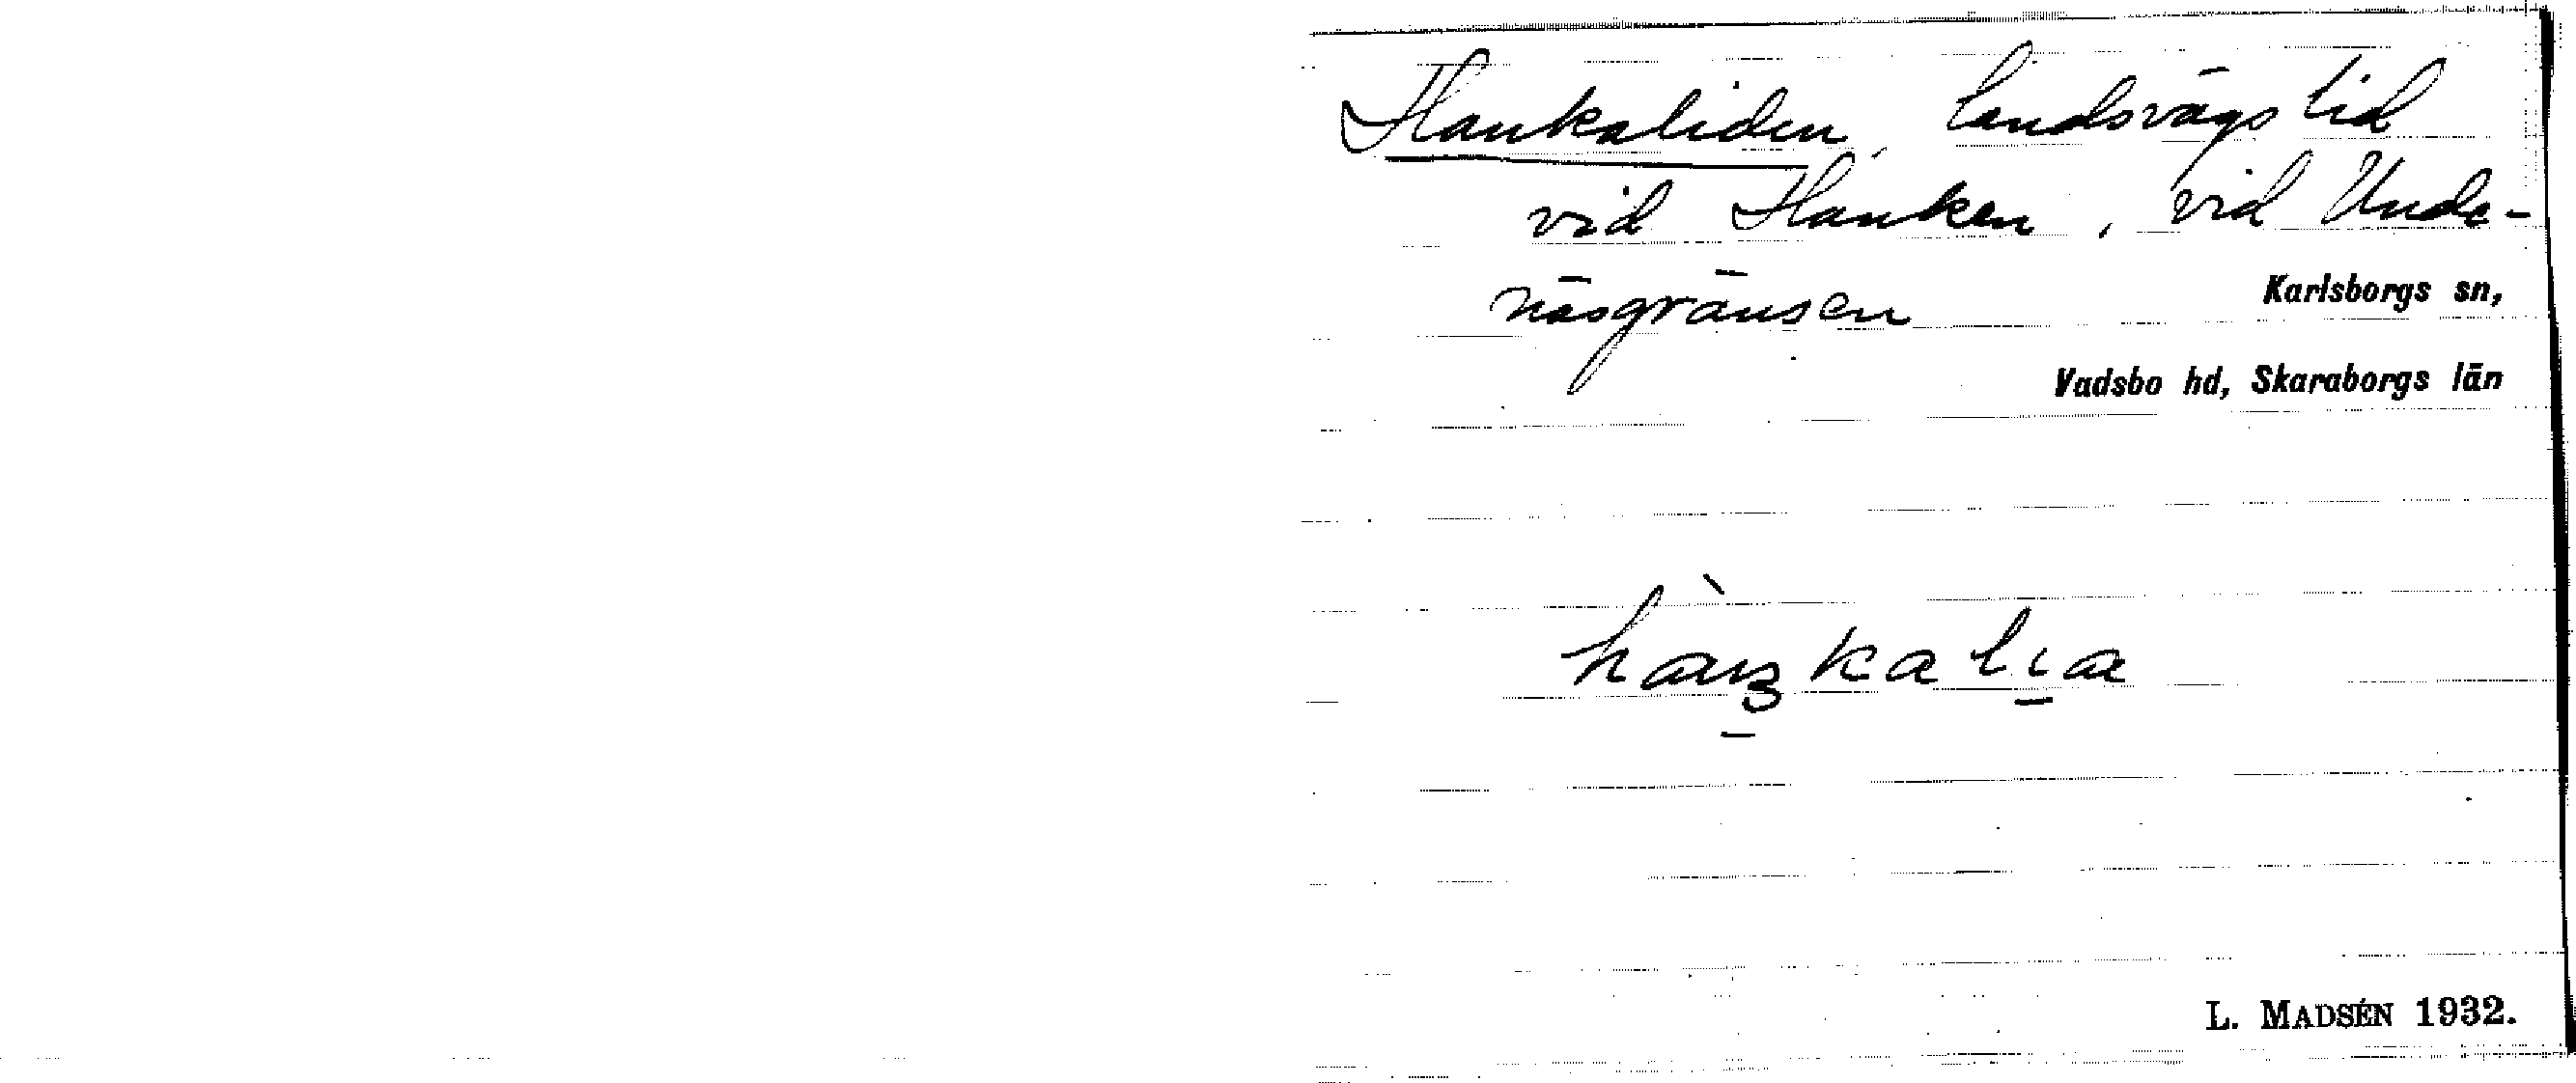 Hankaliden, landsvägslid
vid Hanken, vid Unde-
näsgränsen
Karlsborgs sn,
Vadsbo hd, Skaraborgs län
L. MADSÉN 1932.